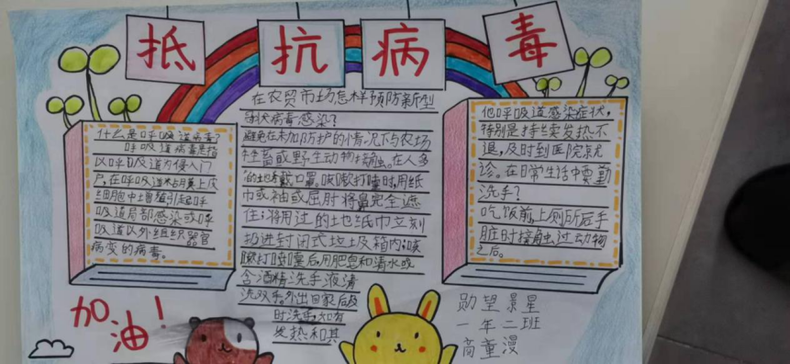 抵抗病毒
什么是呼吸道病毒?
呼吸道病毒是指
以呼吸道为侵入门
户,在呼吸道粘膜上皮
细胞中增殖引起呼
吸道局部感染或呼
吸道以外组织器官
病变的病毒。
在农贸市场怎样预防新型
冠状病毒感染?
避免在未加防护的情况下与农场
牲畜或野生动物接触。在人多
的地方戴口罩。咳嗽打喷嚏时,用纸
巾或袖或屈肘将鼻完全遮
住;将用过的地纸巾立刻
扔进封闭式垃圾箱内;咳
嗽打喷嚏后用肥皂和清水或
含酒精洗手液清
洗双手。外出回家后及
时洗手,如有
发热和其
他呼吸道感染症状,
特别是持续发热不
退,及时到医院就
诊。在日常生活中要勤
洗手?
吃饭前,上厕所后手
脏时接触过动物
之后。
加油!
勋望景星
一年二班
高重漫